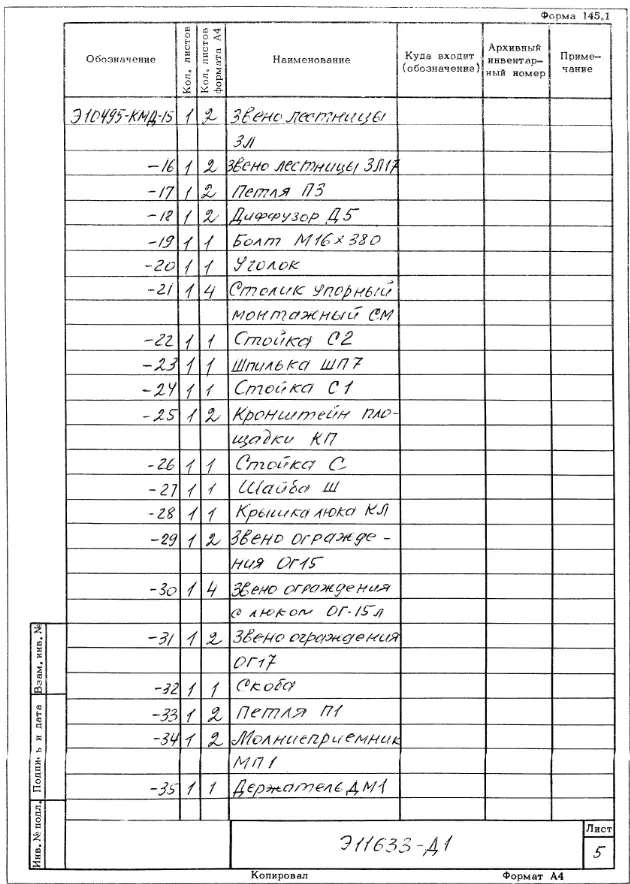 Форма 145.1
Обозначение | Кол. листов | Кол. листов формата А4 | Наименование | Куда входит (обозначение) | Архивный инвентар-ный номер | Приме-чание
Э10495-КМД-15 1 2 Звено лестницы
ЗЛ
-16 1 2 Звено лестницы ЗЛ17
-17 1 2 Петля П3
-18 1 2 Диффузор Д5
-19 1 1 Болт М16×380
-20 1 1 Уголок
-21 1 4 Столик упорный
монтажный СМ
-22 1 1 Стойка С2
-23 1 1 Шпилька ШП7
-24 1 1 Стойка С1
-25 1 2 Кронштейн пло-
щадки КП
-26 1 1 Стойка С
-27 1 1 Шайба Ш
-28 1 1 Крышка люка КЛ
-29 1 2 Звено огражде-
ния ОГ15
-30 1 4 Звено ограждения
с люком ОГ-15л
-31 1 2 Звено ограждения
ОГ17
-32 1 1 Скоба
-33 1 2 Петля П1
-34 1 2 Молниеприемник
МП1
-35 1 1 Держатель ДМ1
Взам. инв. №
Подпись и дата
Инв. № подл.
Э11633-Д1
Лист
5
Копировал Формат А4